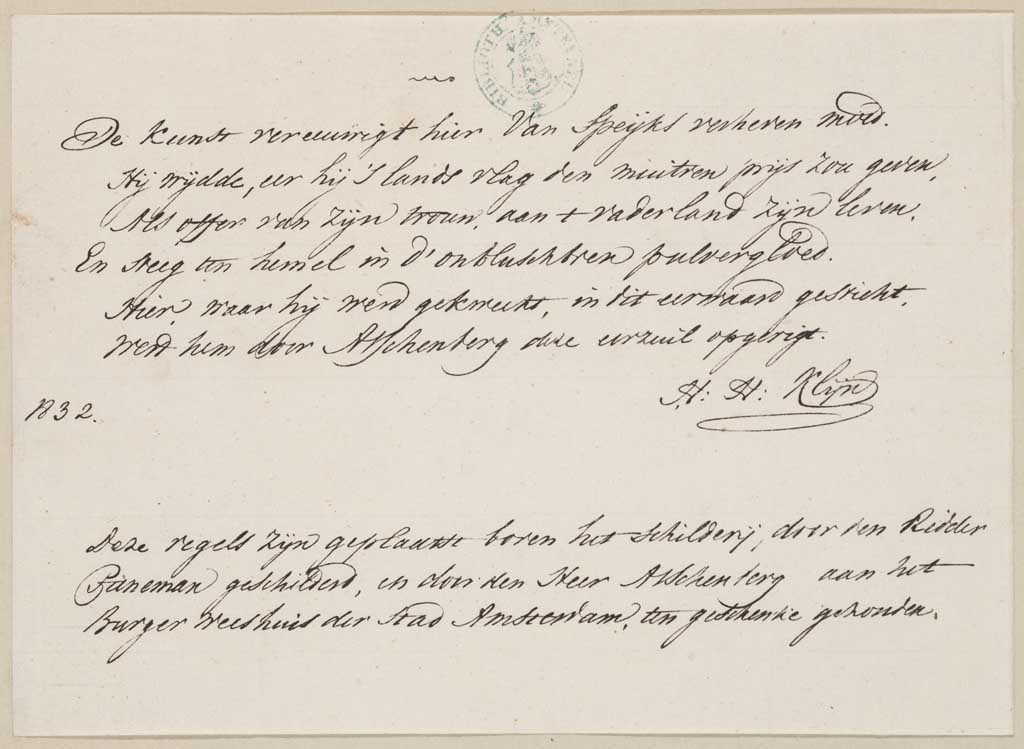 De Kunst vereeuwigt hier Van Speijks verheven moed.
Hij wijdde, eer hij 's lands vlag den muitren prijs zou geven,
Als offer van zijn trouw, aan 't vaderland zijn leven.
En steeg ten hemel in d' onbluschbren pulvergloed.
Hier, waar hij werd gekweekt, in dit eerwaard gesticht,
Werd hem door Asschenberg deze eerzuil opgerigt.
H: H: Klijn
1832.
Deze regels zijn geplaatst boven het schilderij, door den Ridder
Pieneman geschilderd, en door den Heer Asschenberg aan het
Burger Weeshuis der Stad Amsterdam, ten geschenke gezonden.